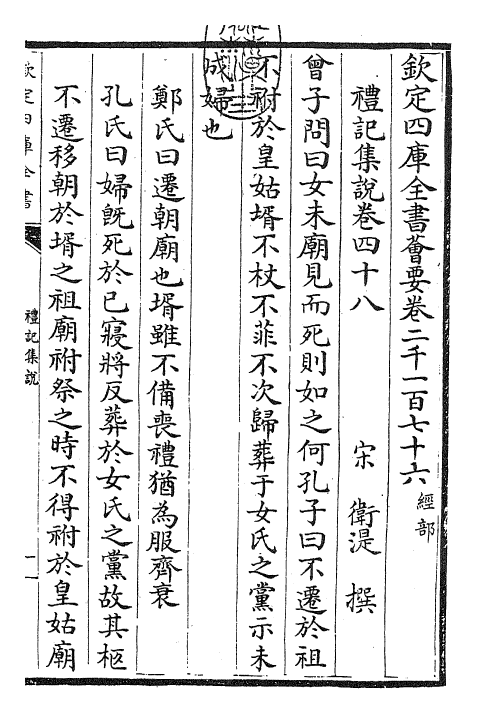 欽定四庫全書薈要卷二千一百七十六經部
禮記集說卷四十八
宋 衛湜 撰
曾子問曰女未廟見而死則如之何孔子曰不遷於祖
不祔於皇姑壻不杖不菲不次歸葬于女氏之黨示未
成婦也
鄭氏曰遷朝廟也壻雖不備喪禮猶為服齊衰
孔氏曰婦旣死於已寢將反葬於女氏之黨故其柩
不遷移朝於壻之祖廟祔祭之時不得祔於皇姑廟
欽定四庫全書
禮記集說
一